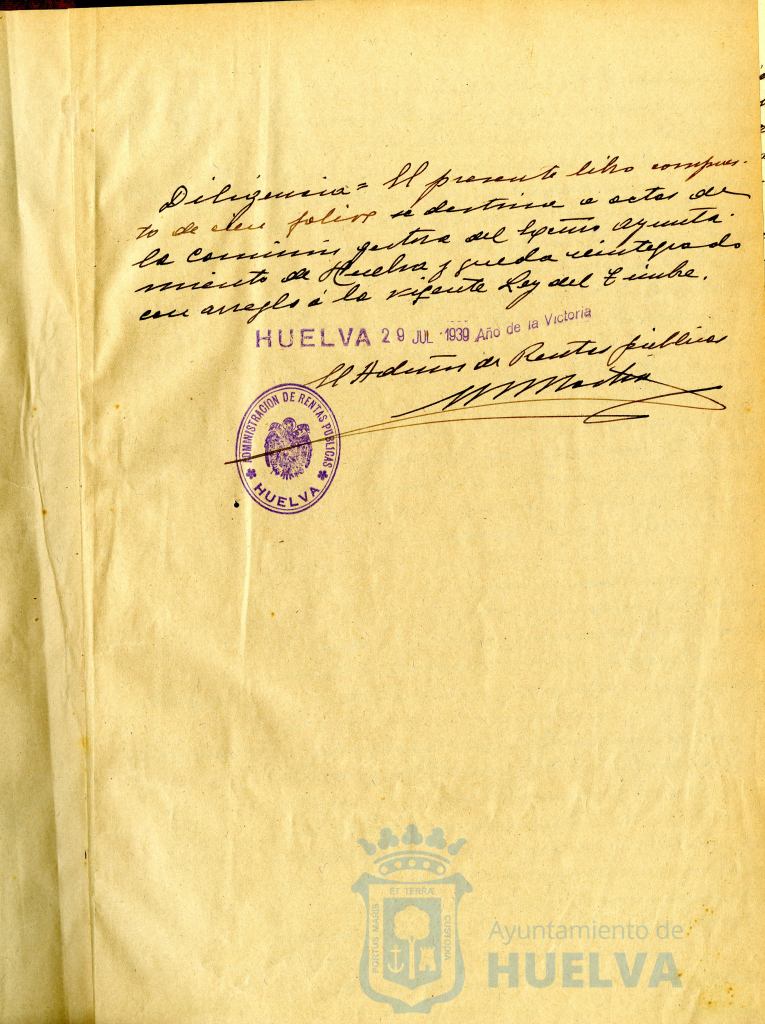 Diligencia = El presente libro compues-
to de cien folios se destina a actas de
la comision gestora del Excmo Ayunta-
miento de Huelva y queda reintegrado
con arreglo á la vigente Ley del Timbre.
HUELVA 29 JUL 1939 Año de la Victoria
El Admor de Rentas públicas
ADMINISTRACION DE RENTAS PUBLICAS
* HUELVA *
ET TERRÆ
PORTUS MARIS
CUSTODIA
Ayuntamiento de
HUELVA